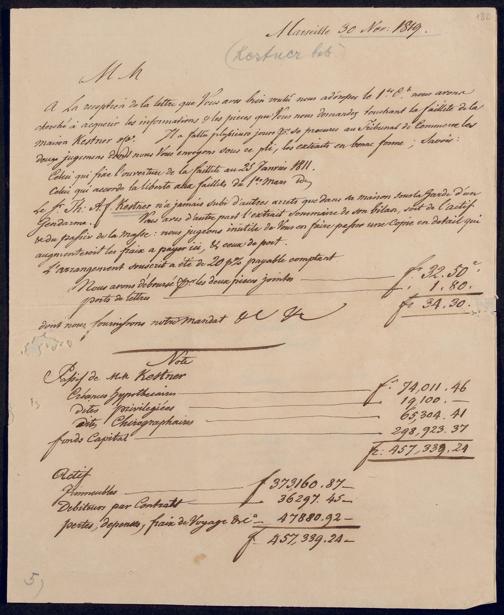 182
Marseille 30 Nov: 1819.
(Kestner bib)
M M
A La reception de la lettre que Vous aves bien voulu nous adresser le 1er Ct. nous avons
cherché à acquerir les informations & les pièces que Vous nous demandez touchant la faillite de la
maison Kestner pp. Il a fallu plusieurs jours pr. se procurer au Tribunal de Commerce les
deux jugemens dont nous Vous envoyons sous ce pli, les extraits en bonne forme; Savoir:
Celui qui fixe l'ouverture de la faillite au 25 Janvier 1811.
Celui qui accorde la liberté aux faillis du 1er Mars do
Le Sr. Th. Af Kestner n'a jamais subi d'autres arrets que dans sa maison sous la garde d'un
Gendarme. Vous aves d'autre part l'extrait Sommaire de son bilan, soit de l'actif
& du passif de la masse: nous jugeons inutile de Vous en faire passer une Copie en detail qui
augmenteroit les frais a payer ici, & ceux de port.
L'arrangement souscrit a été de 20 p% payable comptant
Nous avons déboursé pr. les deux pieces jointes fs 32.50c
ports de lettres 1.80.
fs 34.30.
dont nous fournissons notre mandat &c &c
Note
Passif de Mr Kestner
Créances hypothecaires fs 74,011.46
dites privilegiées 19,100.—
dites Chirographaires 65,304.41
fonds Capital 298,923.37
fs: 457,339.24
Actif
Immeubles f 373,160.87—
Debiteurs par Contrats 36297.45—
pertes, depenses, fraix de Voyage &ca 47880.92—
f. 457,339.24—
5)